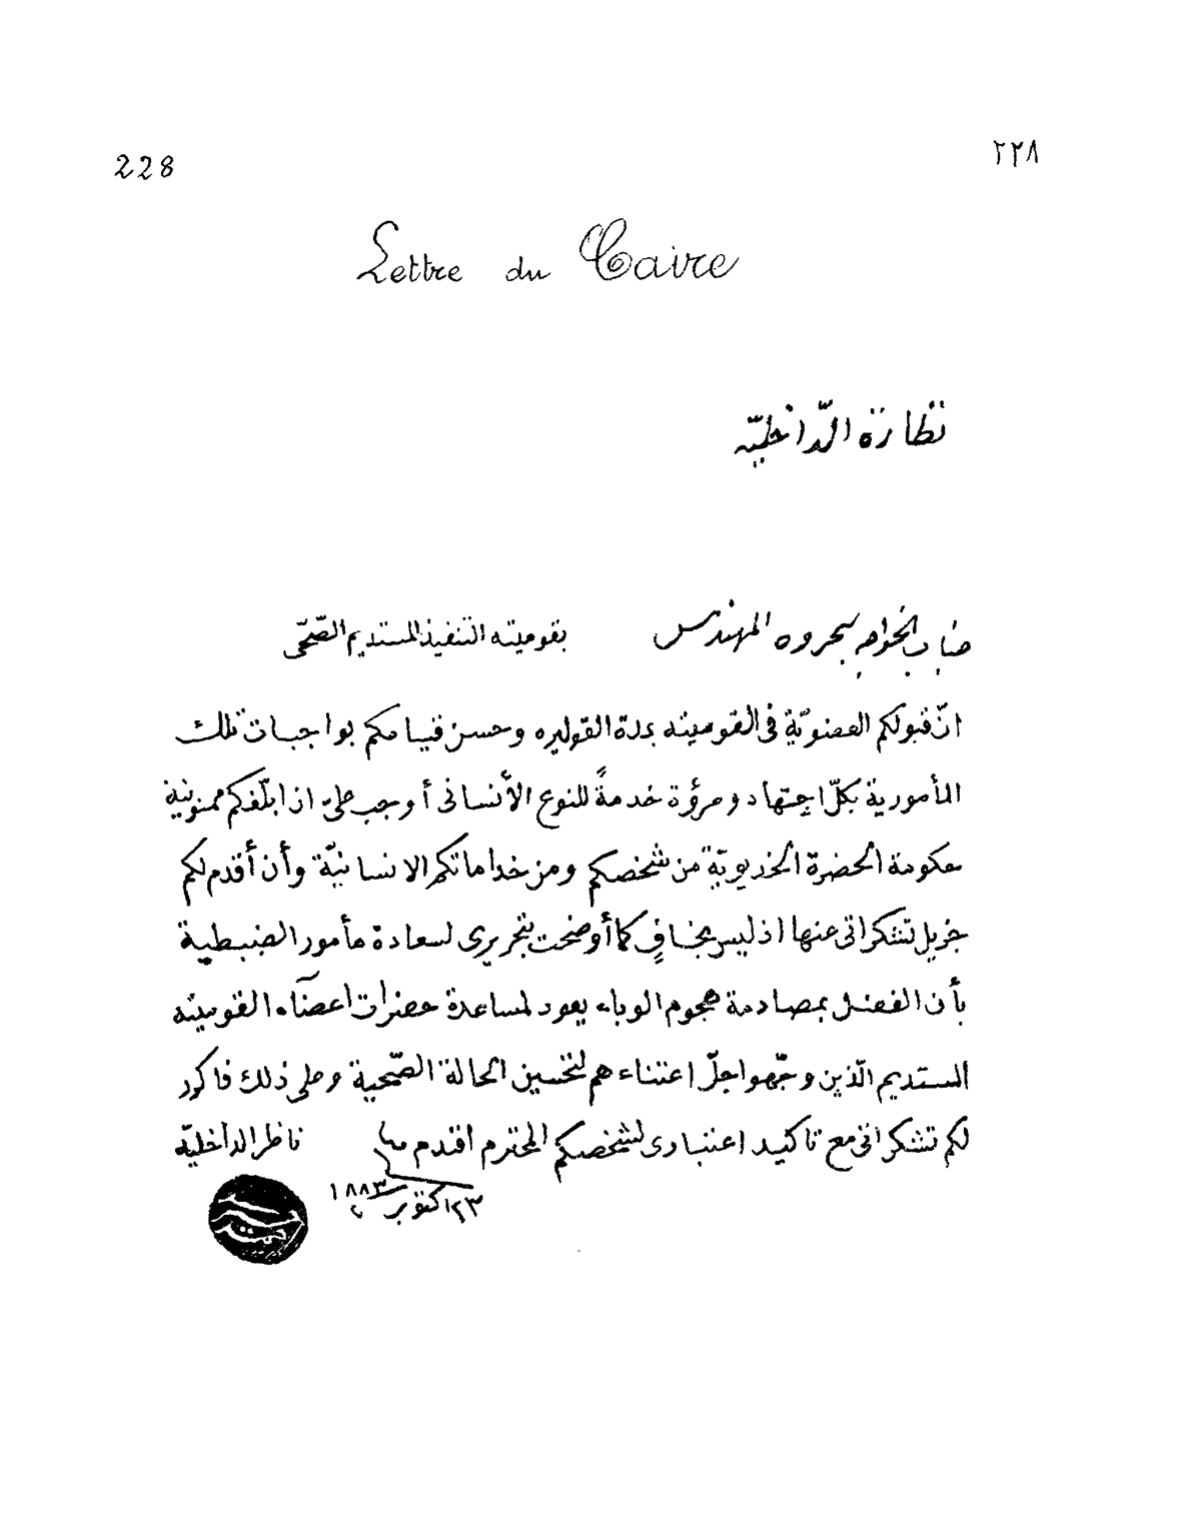 228
٢٢٨
Lettre du Caire
نظارة الدّاخليّه
جناب الخواجه بحروه المهندس بقوميته التنفيذ المستديم الصّحّى
انّ قبولكم العضويّة فى القوميته بمدة القوليره وحسن قيامكم بواجبات تلك
المأمورية بكلّ اجتهاد ومروٴة خدمةً للنوع الأنسانى أوجب علىّ ان ابلّغكم ممنونية
حكومة الحضرة الخديويّة من شخصكم ومن خداماتكم الانسانيّة وأن أقدم لكم
جزيل تشكراتى عنها اذ ليس بخافٍ كما أوضحت بتحريرى لسعادة مأمور الضبطية
بأن الفضل بمصادمة هجوم الوباء يعود لمساعدة حضرات اعضآء القوميته
المستديم الّذين وجّهوا اجلّ اعتناءهم لتحسين الحالة الصّحية وعلى ذلك فاكرر
لكم تشكراتى مع تاكيد اعتبارى لشخصكم المحترم افندم ناظر الداخليّه
٢٣ اكتوبر ١٨٨٣